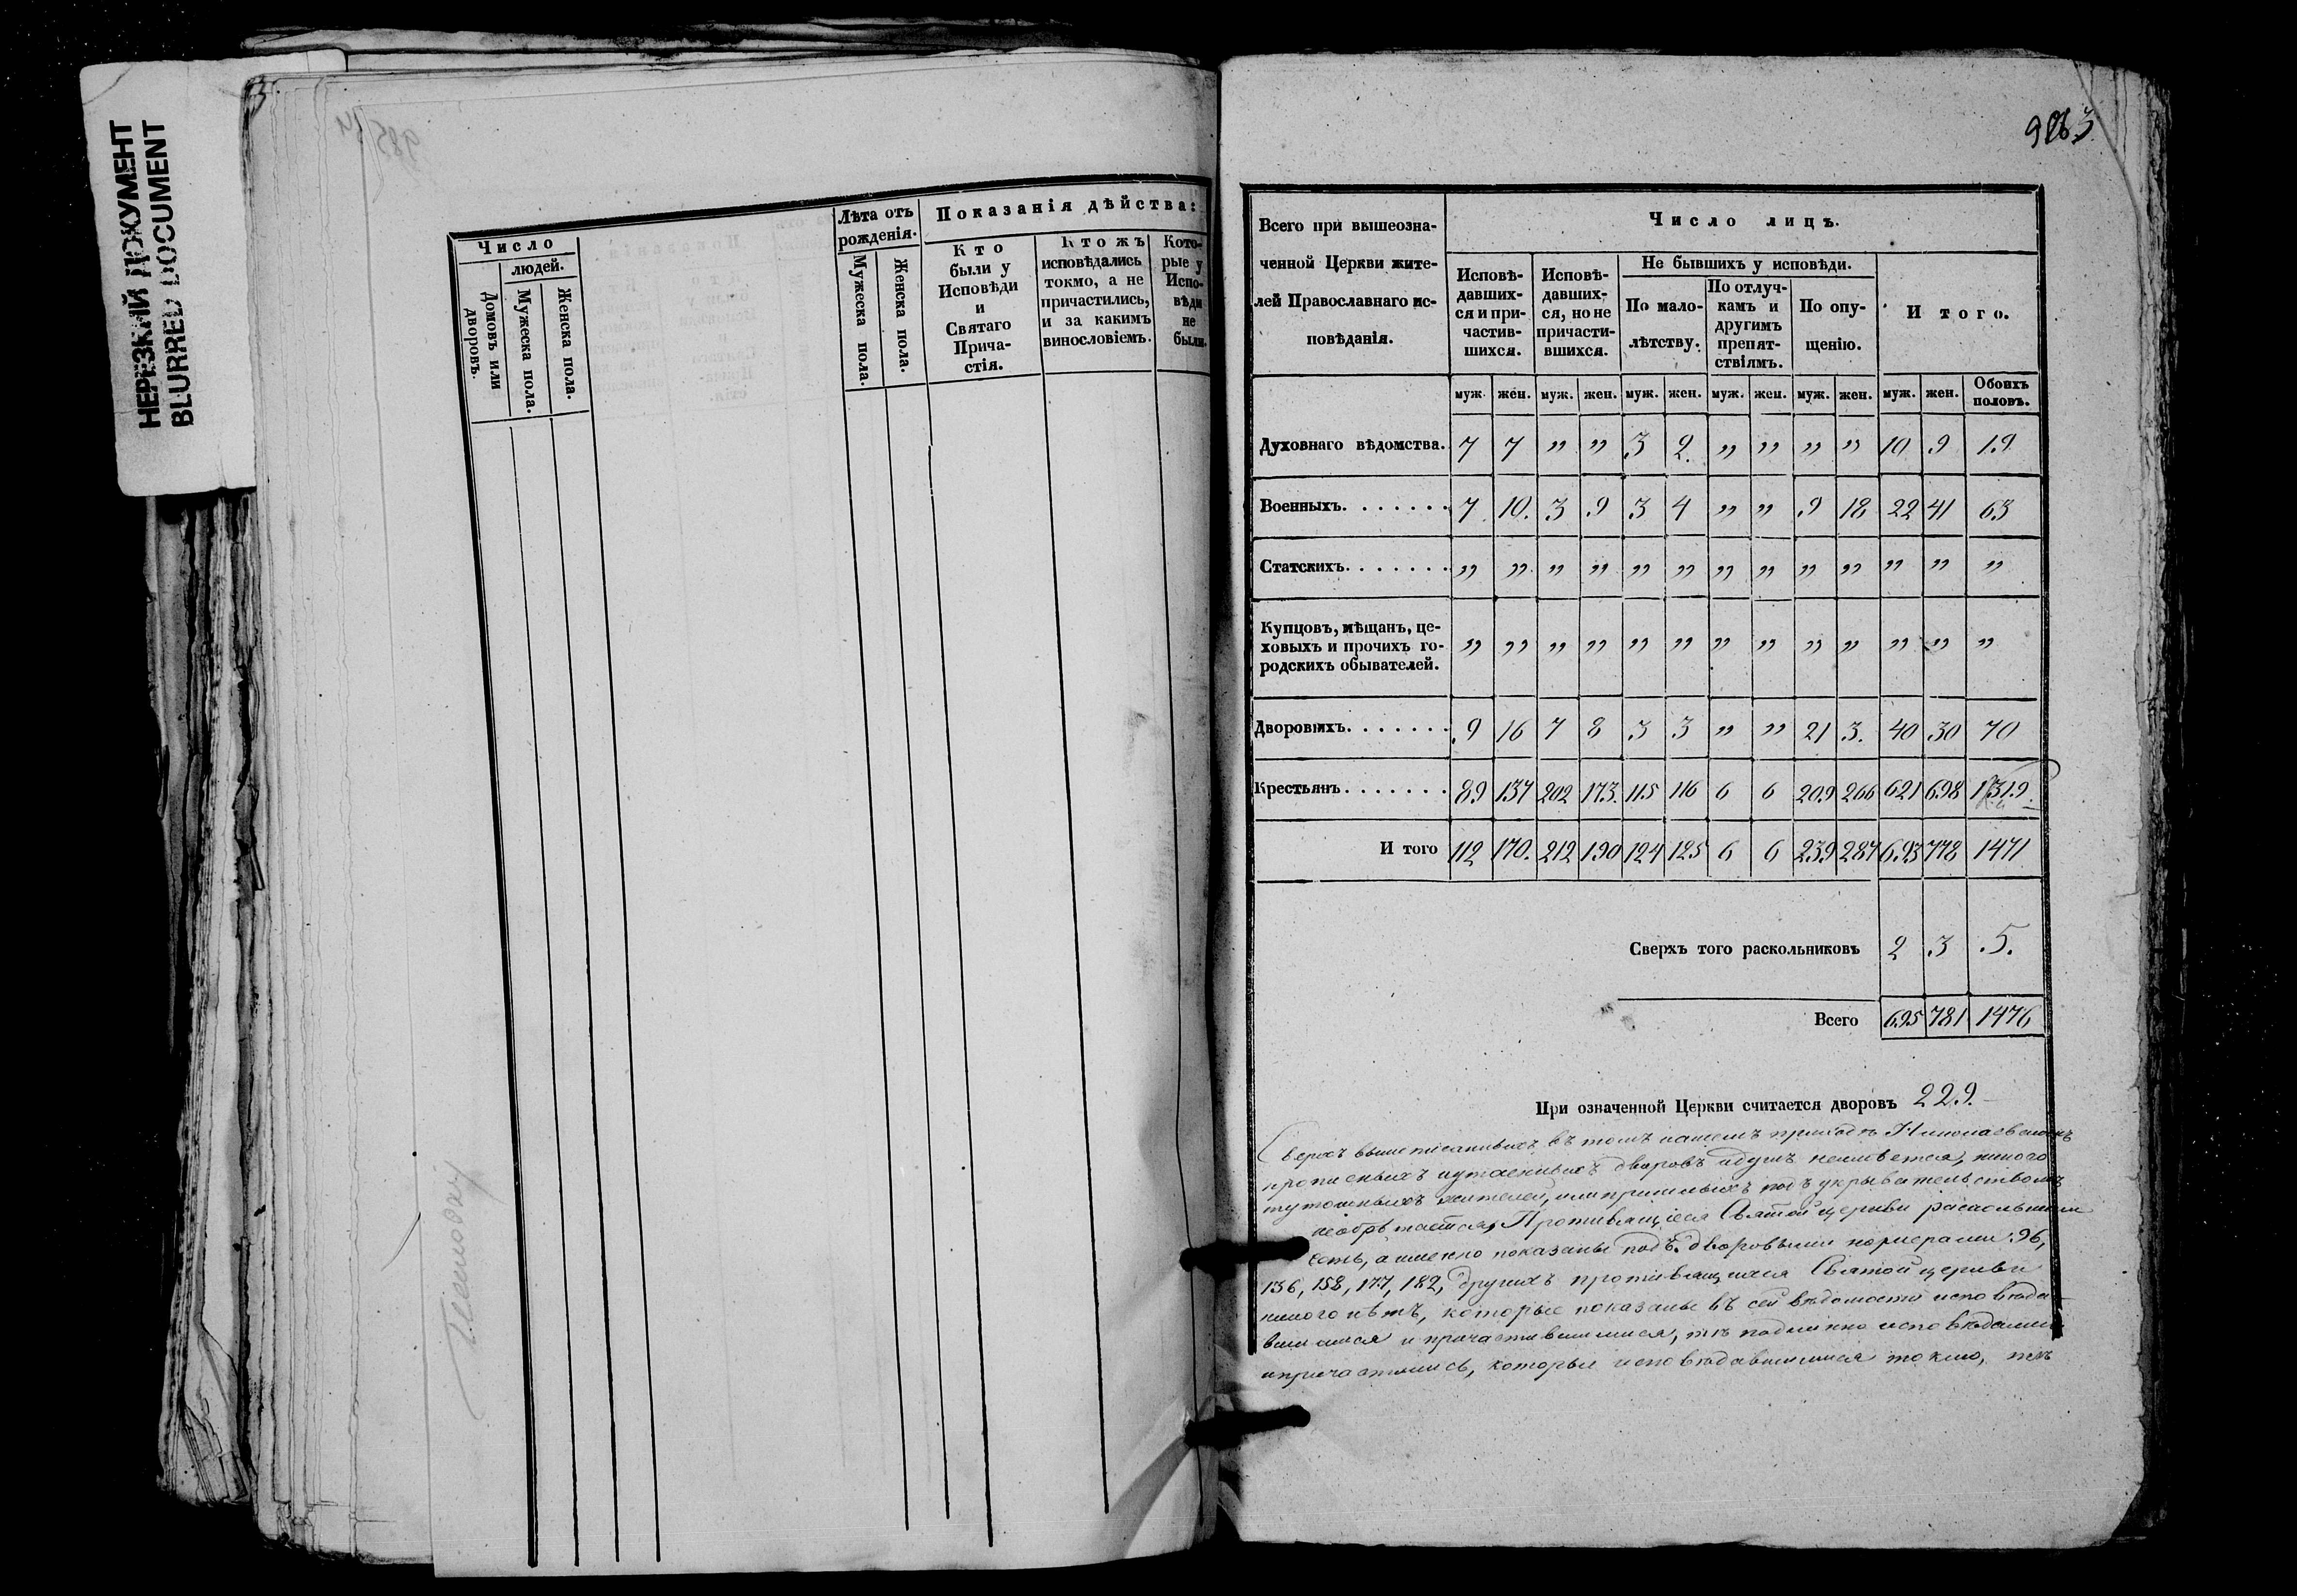 НЕРЕЗКИЙ ДОКУМЕНТ
BLURRED DOCUMENT
Число
людей.
Домовъ или дворовъ.
Мужеска пола.
Женска пола.
Лѣта отъ
рожденія.
Мужеска пола.
Женска пола.
Показанія дѣйства:
Кто
были у
Исповѣди
и
Святаго
Прича-
стія.
Ктожъ
исповѣдались
токмо, а не
причастились,
и за какимъ
винословіемъ.
Кото-
рые у
Испо-
вѣди
не
были.
Всего при вышеозна-
ченной Церкви жите-
лей Православнаго ис-
повѣданія.
Число лицъ.
Исповѣ-
давших-
ся и при-
частив-
шихся.
Исповѣ-
давших-
ся, но не
причасти-
вшихся.
Не бывшихъ у исповѣди.
По мало-
лѣтству.
По отлуч-
камъ и
другимъ
препят-
ствіямъ.
По опу-
щенію.
И того.
муж. жен. муж. жен. муж. жен. муж. жен. муж. жен. муж. жен. Обоихъ половъ.
Духовнаго вѣдомства. 7 7 „ „ 3 2 „ „ „ „ 10 9 19
Военныхъ. . . . . . . 7 10. 3 9 3 4 „ „ 9 18 22 41 63
Статскихъ. . . . . . . „ „ „ „ „ „ „ „ „ „ „ „ „
Купцовъ, мѣщанъ, це-
ховыхъ и прочихъ го-
родскихъ обывателей. „ „ „ „ „ „ „ „ „ „ „ „ „
Дворовыхъ. . . . . . . 9 16 7 8 3 3 „ „ 21 3. 40 30 70
Крестьянъ. . . . . . . 89 137 202 173. 115 116 6 6 209 266 621 698 1319.
И того 112 170. 212 190 124 125 6 6 239 287 693 778 1471
Сверхъ того раскольниковъ 2 3 5.
Всего 695 781 1476
При означенной Церкви считается дворовъ 229.
Сверхъ вышеписанныхъ въ томъ нашемъ приходѣ
прописныхъ и утаенныхъ дворовъ и душъ неимѣется, никого
тутошныхъ жителей, или пришлыхъ подъ укрывательствомъ
необрѣтается, Противящіеся Святой церкви раскольники
есть, а именно показаны подъ дворовыми номерами: 96,
136, 158, 177, 182, другихъ противящихся Святой церкви
никого нѣтъ, которые показаны въ сей вѣдомости исповѣда-
вшимися и причастившимися, тѣ подлинно исповѣдались
и причастились, которые исповѣдавшимися токмо, тѣ